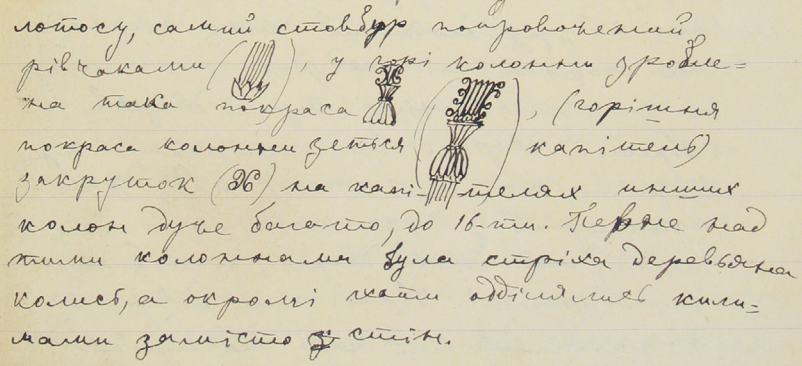 лотосу, самий стовбур попроволений
рівчаками ( ), у горі колонни зробле=
на така покраса , (горішня
покраса колонни зеться капітель)
закруток ( ) на капі-телях инших
колон дуже багато, до 16-ти. Перше над
тими колоннами була стріха деревьяна
колись, а окромі хати одділялись кили=
мами замісто стін.